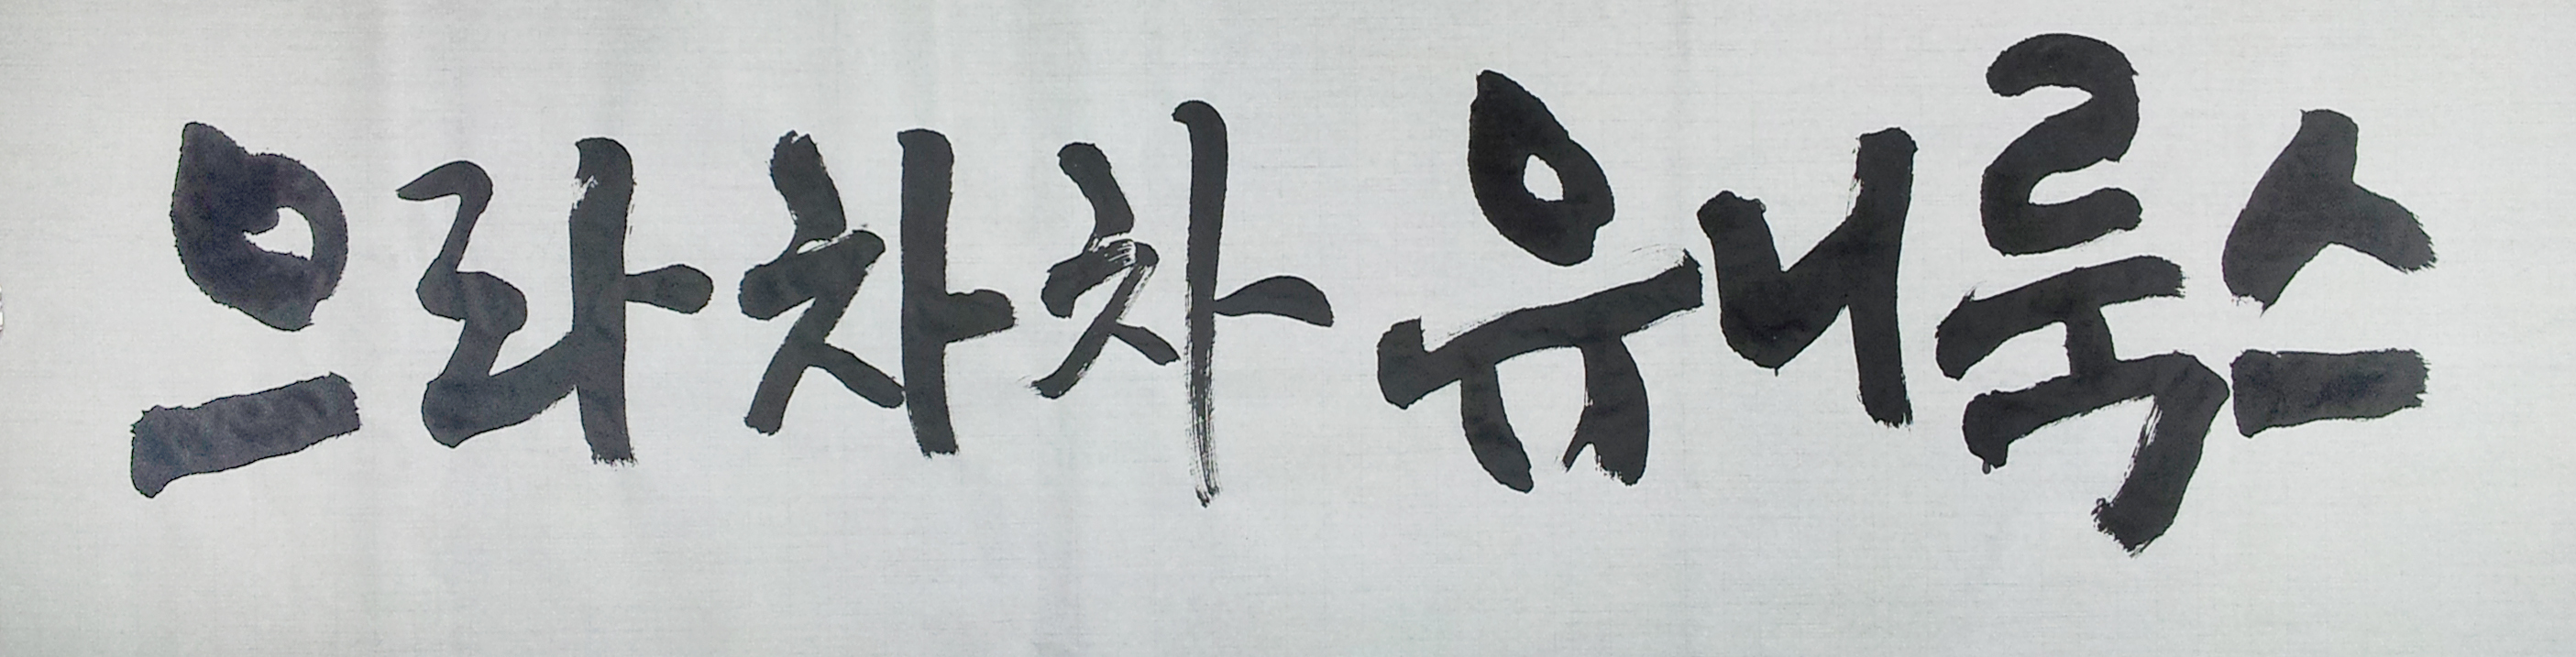 으라차차 유니룩스